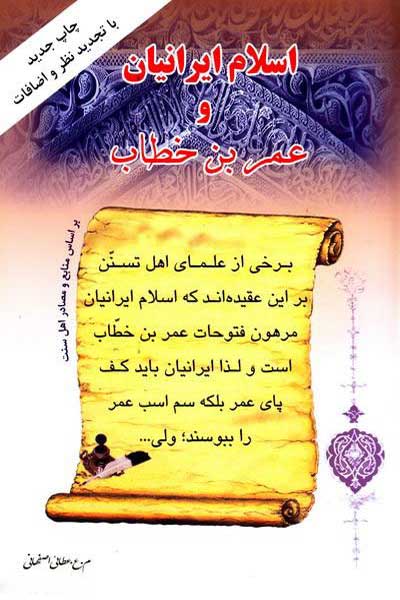 چاپ جدید
با تجدید نظر و اضافات
اسلام ایرانیان
و
عمر بن خطاب
بر اساس منابع و مصادر اهل سنت
برخی از علـمـای اهل تسنّن
بر این عقیده‌اند که اسلام ایرانیان
مرهون فتوحات عمر بن خطّاب
است و لـذا ایرانیان باید کـف
پای عمر بلکه سم اسب عمر
را ببوسند؛ ولی...
م.ع.عطائی اصفهانی